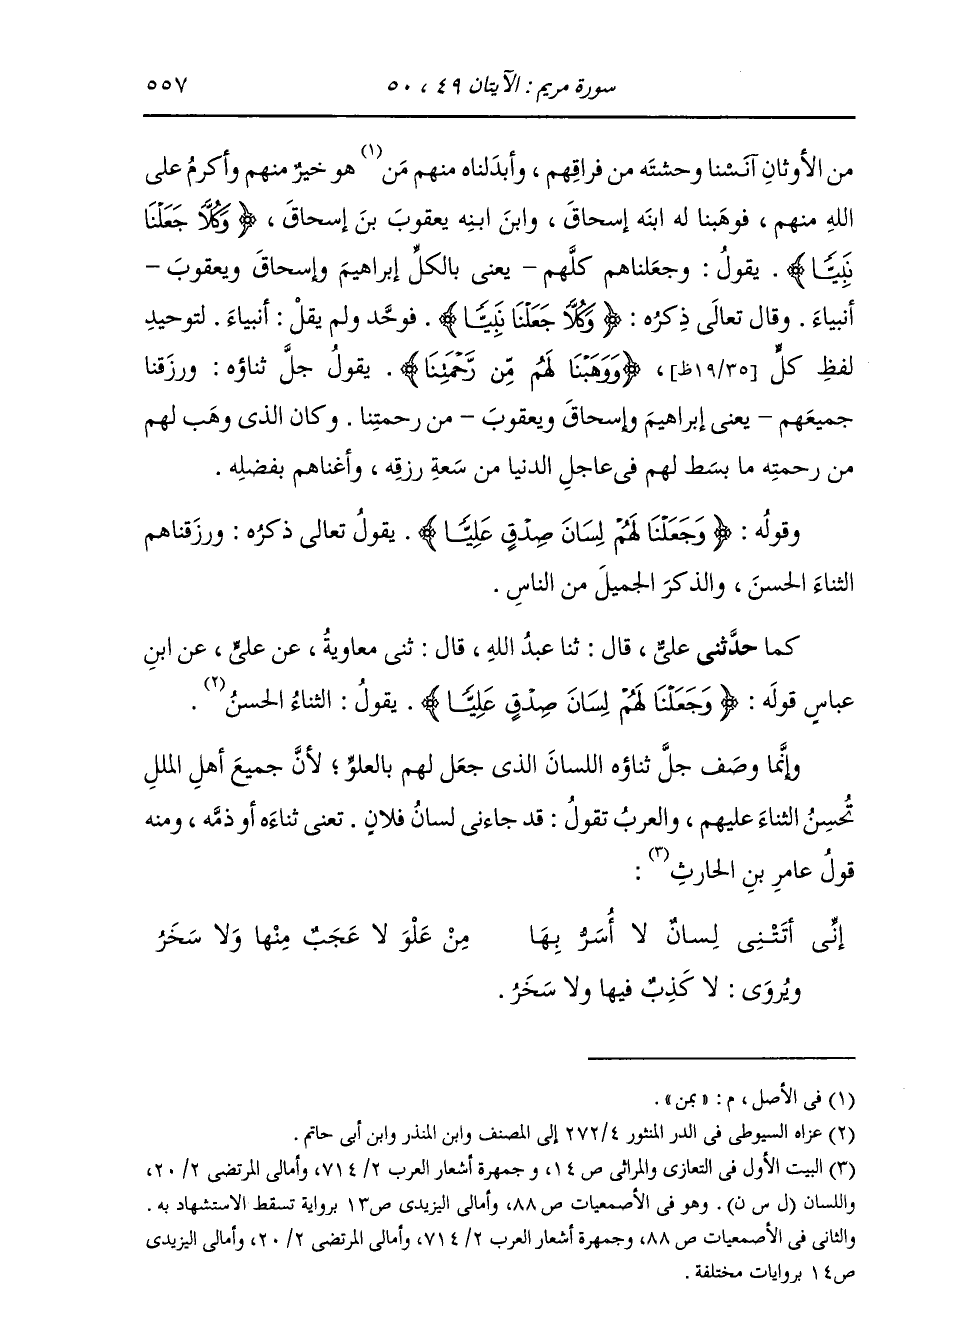 سورة مريم : الآيتان ٤٩ ، ٥٠
٥٥٧
من الأوثانِ آنَسْنا وحشتَه من فراقِهم ، وأبدَلناه منهم مَن(١) هو خيرٌ منهم وأكرمُ على
اللهِ منهم ، فوهَبنا له ابنَه إسحاقَ ، وابنَ ابنِه يعقوبَ بنَ إسحاقَ ، ﴿ وَكُلًّا جَعَلْنَا
نَبِيًّا ﴾ . يقولُ : وجعَلناهم كلَّهم – يعنى بالكلِّ إبراهيمَ وإسحاقَ ويعقوبَ –
أنبياءَ . وقال تعالَى ذِكرُه : ﴿ وَكُلًّا جَعَلْنَا نَبِيًّا ﴾ . فوحَّد ولم يقلْ : أنبياءَ . لتوحيدِ
لفظِ كلٍّ [١٩/٣٥ظ] ، ﴿وَوَهَبْنَا لَهُم مِّن رَّحْمَتِنَا﴾ . يقولُ جلَّ ثناؤه : ورزَقنا
جميعَهم – يعنى إبراهيمَ وإسحاقَ ويعقوبَ – من رحمتِنا . وكان الذى وهَب لهم
من رحمتِه ما بسَط لهم فى عاجلِ الدنيا من سَعةِ رزقِه ، وأغناهم بفضلِه .
وقولُه : ﴿ وَجَعَلْنَا لَهُمْ لِسَانَ صِدْقٍ عَلِيًّا ﴾ . يقولُ تعالى ذكرُه : ورزَقناهم
الثناءَ الحسنَ ، والذكرَ الجميلَ من الناسِ .
كما حدَّثنى علىٌّ ، قال : ثنا عبدُ اللهِ ، قال : ثنى معاويةُ ، عن علىٍّ ، عن ابنِ
عباسٍ قولَه : ﴿ وَجَعَلْنَا لَهُمْ لِسَانَ صِدْقٍ عَلِيًّا ﴾ . يقولُ : الثناءُ الحسنُ(٢) .
وإنَّما وصَف جلَّ ثناؤه اللسانَ الذى جعَل لهم بالعلوِّ ؛ لأنَّ جميعَ أهلِ المللِ
تُحسِنُ الثناءَ عليهم ، والعربُ تقولُ : قد جاءنى لسانُ فلانٍ . تعنى ثناءَه أو ذمَّه ، ومنه
قولُ عامرِ بنِ الحارثِ(٣) :
إنِّى أتَتْنِى لِسانٌ لا أُسَرُّ بِهَا مِنْ عَلْوَ لا عَجَبٌ مِنْها وَلا سَخَرُ
ويُروَى : لا كَذِبٌ فيها ولا سَخَرُ .
(١) فى الأصل ، م : « بمن » .
(٢) عزاه السيوطى فى الدر المنثور ٢٧٢/٤ إلى المصنف وابن المنذر وابن أبى حاتم .
(٣) البيت الأول فى التعازى والمراثى ص ١٤، و جمهرة أشعار العرب ٢/ ٧١٤، وأمالى المرتضى ٢/ ٢٠،
واللسان (ل س ن) . وهو فى الأصمعيات ص ٨٨، وأمالى اليزيدى ص١٣ برواية تسقط الاستشهاد به .
والثانى فى الأصمعيات ص ٨٨، وجمهرة أشعار العرب ٢/ ٧١٤، وأمالى المرتضى ٢/ ٢٠، وأمالى اليزيدى
ص١٤ بروايات مختلفة .